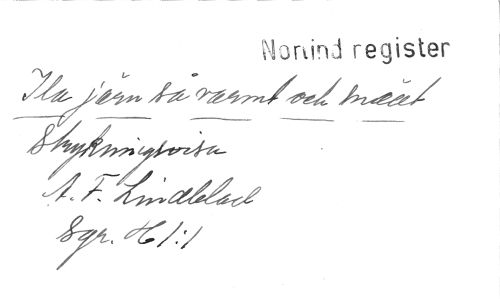 Norlind register
Ila järn så varmt och snällt
Strykningsvisa
A. F. Lindblad
Sgr. H 1:1